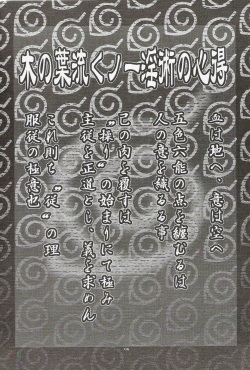 木の葉流くノ一淫術の心得
血は地へ、意は空へ
五色六能の点を纏びるは
人の意を織るる事
己の肉を覆すは
“操り”の始まりにて極み
主従を正道とし、義を求めん
これ則ち“従”の理
服従の極意也